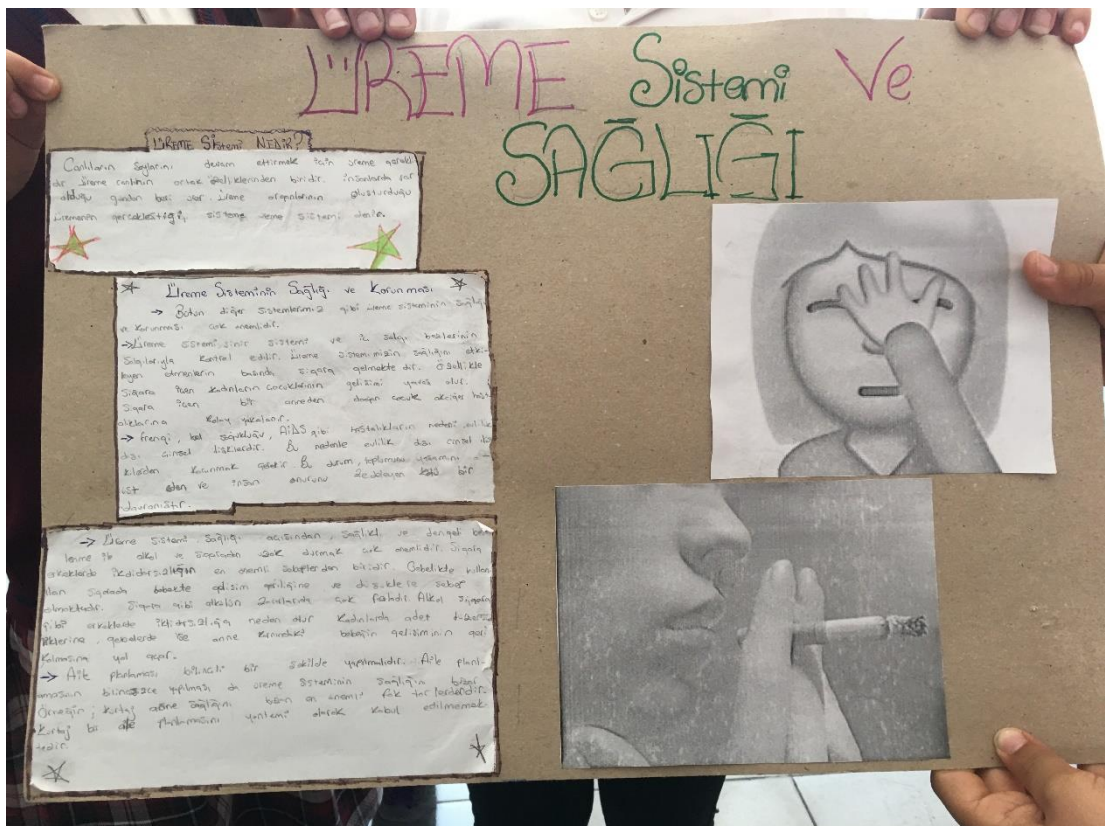 ÜREME Sistemi Ve
SAĞLIĞI
ÜREME Sistemi NEDİR?
Canlıların soylarını devam ettirmek için üreme gerekli
dir üreme canlının ortak özelliklerinden biridir. insanlarda var
olduğu günden beri var. Üreme organlarının oluşturduğu
üremenin gerçekleştiği, sisteme üreme sistemi denir.
Üreme Sisteminin Sağlığı ve Korunması
→ Bütün diğer sistemlerimiz gibi üreme sisteminin sağlığı
ve korunması çok önemlidir.
→ Üreme sistemi, sinir sistemi ve iç salgı bezlerinin
salgılarıyla kontrol edilir. Üreme sistemimizin sağlığını etki-
leyen etmenlerin başında sigara gelmekte dir. Özellikle
Sigara içen kadınların çocuklarının gelişimi yavaş olur.
Sigara içen bir anneden doğan çocuk akciğer hast
alıklarına kolay yakalanır.
→ Frengi, bel soğukluğu, AİDS gibi hastalıkların nedeni evlilik
dışı cinsel ilişkilerdir. Bu nedenle evlilik dışı cinsel iliş
kilerden korunmak gerekir. Bu durum, toplumsal yaşamını
üst eden ve insan onurunu zedeleyen kötü bir
davranıştır.
→ Üreme sistemi sağlığı açısından, sağlıklı ve dengeli bes
lenme ile alkol ve sigaradan uzak durmak çok önemlidir. Sigara
erkeklerde iktidarsızlığın en önemli sebeplerden biridir. Gebelikte kullan
ılan sigarada bebekte gelişim geriliğine ve düşüklere sebep
olmaktadır. Sigara gibi alkolün zararlarıda çok fazladır. Alkol sigara
gibi erkeklerde iktidarsızlığa neden olur kadınlarda adet düzensiz
liklerine, gebelerde ise anne karnındaki bebeğin gelişiminin geri
kalmasına yol açar.
→ Aile planlaması bilinçli bir şekilde yapılmalıdır. Aile planl-
amasının bilinçsizce yapılması da üreme sisteminin sağlığını bozar
Örneğin; kürtaj anne sağlığını bozan en önemli fak törlerdendir.
Kürtaj bir aile planlamasını yöntemi olarak kabul edilmemek-
tedir.